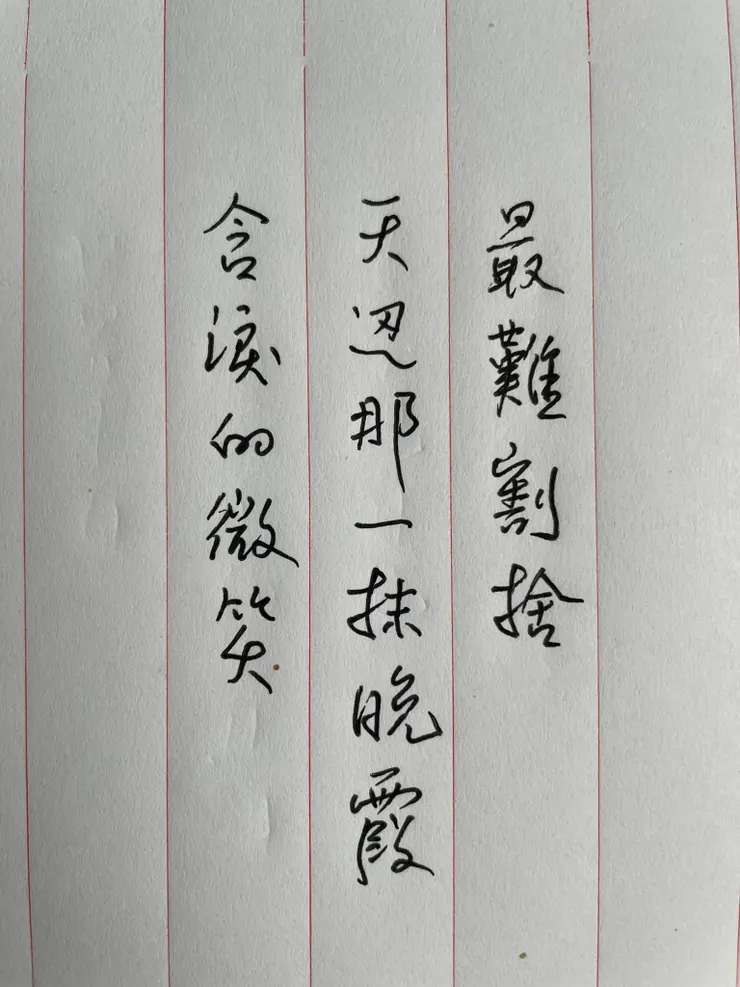 最難割捨
天边那一抹晚霞
含淚的微笑